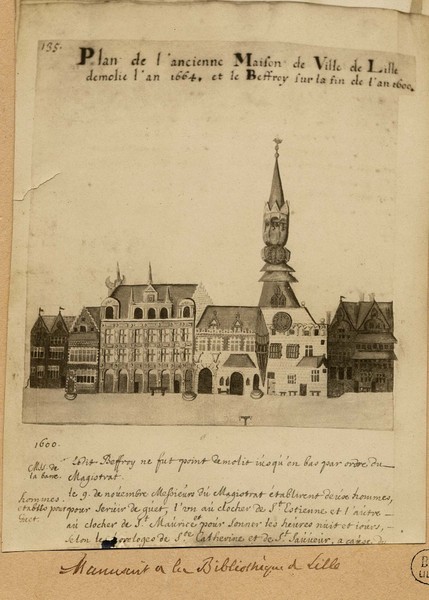 135.
Plan de l'ancienne Maison de Ville de Lille
demolie l'an 1664. et le Beffroy sur la fin de l'an 1600.
1600.
Ledit Beffroy ne fut point demolit iusqu'en bas par ordre du
Magistrat.
Mss. de la
le 9. de novembre Messieurs du Magistrat établirent deux hommes,
hommes établis pour
guet.
pour servir de guet, l'un au clocher de St. Estienne et l'aûtre
aû clocher de St. Maurice pour sonner les heures nuit et iours,
selon les horloges de Ste. Catherine et de St. Sauveur, a caûse de
Manuscrit de la Bibliothèque de Lille